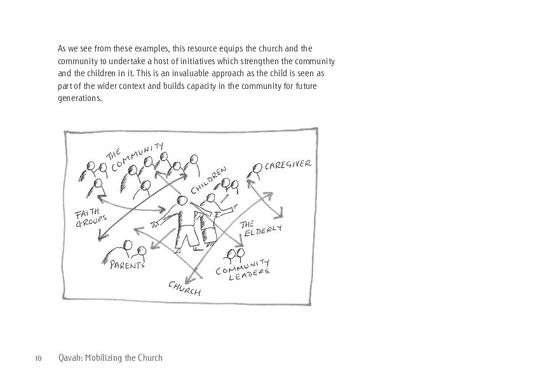 As we see from these examples, this resource equips the church and the
community to undertake a host of initiatives which strengthen the community
and the children in it. This is an invaluable approach as the child is seen as
part of the wider context and builds capacity in the community for future
generations.
THE
COMMUNITY
CHILDREN
CAREGIVER
FAITH
GROUPS
THE
ELDERLY
PARENTS
COMMUNITY
LEADERS
CHURCH
10 Qavah: Mobilizing the Church